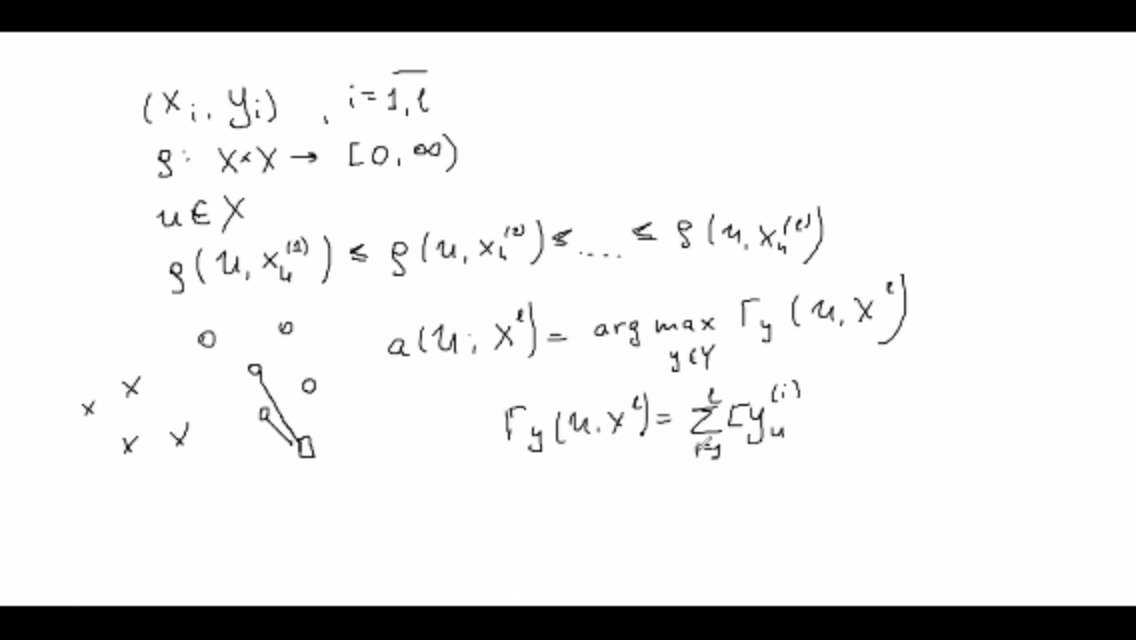 (x_i, y_i), i = \overline{1, l}
ρ: X × X → [0, ∞)
u ∈ X
ρ(u, x_u^{(1)}) ≤ ρ(u, x_u^{(2)}) ≤ .... ≤ ρ(u, x_u^{(l)})
a(u; X^l) = arg max_{y∈Y} Γ_y(u, X^l)
Γ_y(u, X^l) = \sum^l [y_u^{(i)}